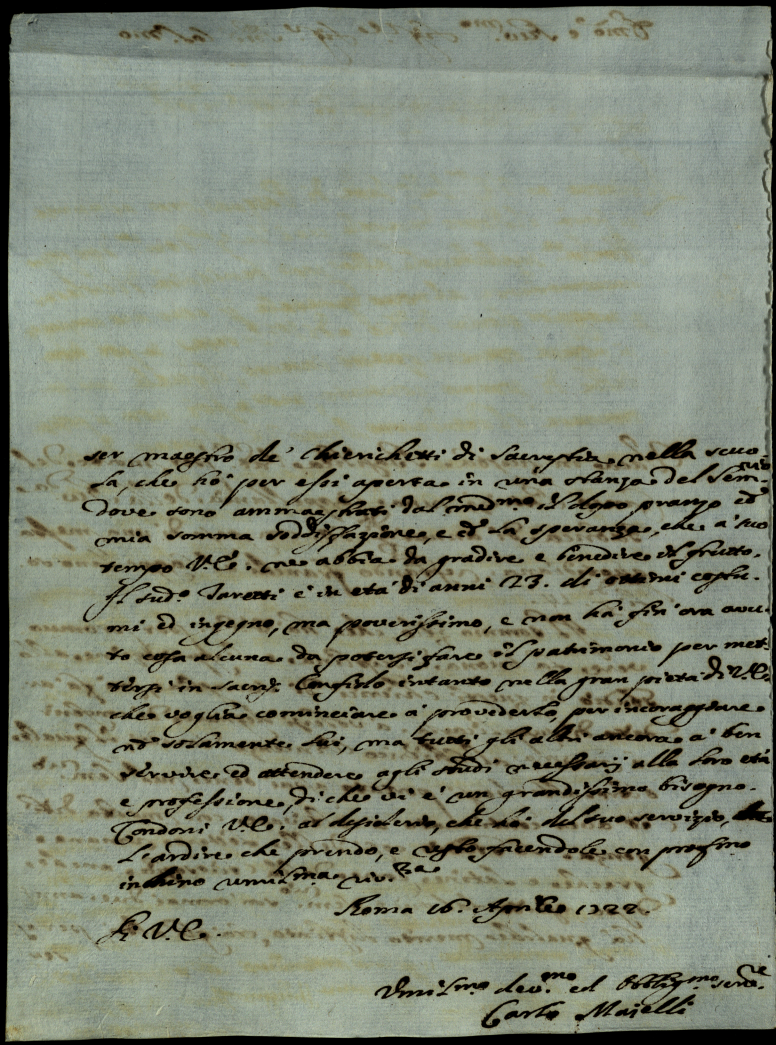 ser maestro de' Chierichetti di Sacrestia nella scuo-
la, che hò per essi aperta in una stanza del Sem.rio
dove sono ammaestrati dal med.mo il dopo pranzo cō
mia somma soddisfazione, e cō la speranza, che à suo
tempo V.E. ne abbia da gradire e benedire il frutto.
Il sud.o Taretti è in età di anni 23. di ottimi costu-
mi ed ingegno, ma poverissimo, e non hà fin'ora avu-
to cosa alcuna da potersi fare il patrimonio per met-
tersi in sacris. Confido intanto nella gran pietà di V.E.
che voglia cominciare à provederlo, per incoraggiare
nō solamente lui, ma tutti gli altri ancora à ben
servire ed attendere agli studi necessarij alla loro età
e professione, di che vi è un grandissimo bisogno.
Condoni V.E. al desiderio, che hò del suo servizio,
l'ardire che prendo, e resto facendole con profondo
inchino umilis.ma riv.za
Roma 16. Aprile 1722.
Di V.E.
Umilis.mo dev.mo ed Obblig.mo serv.re
Carlo Majelli